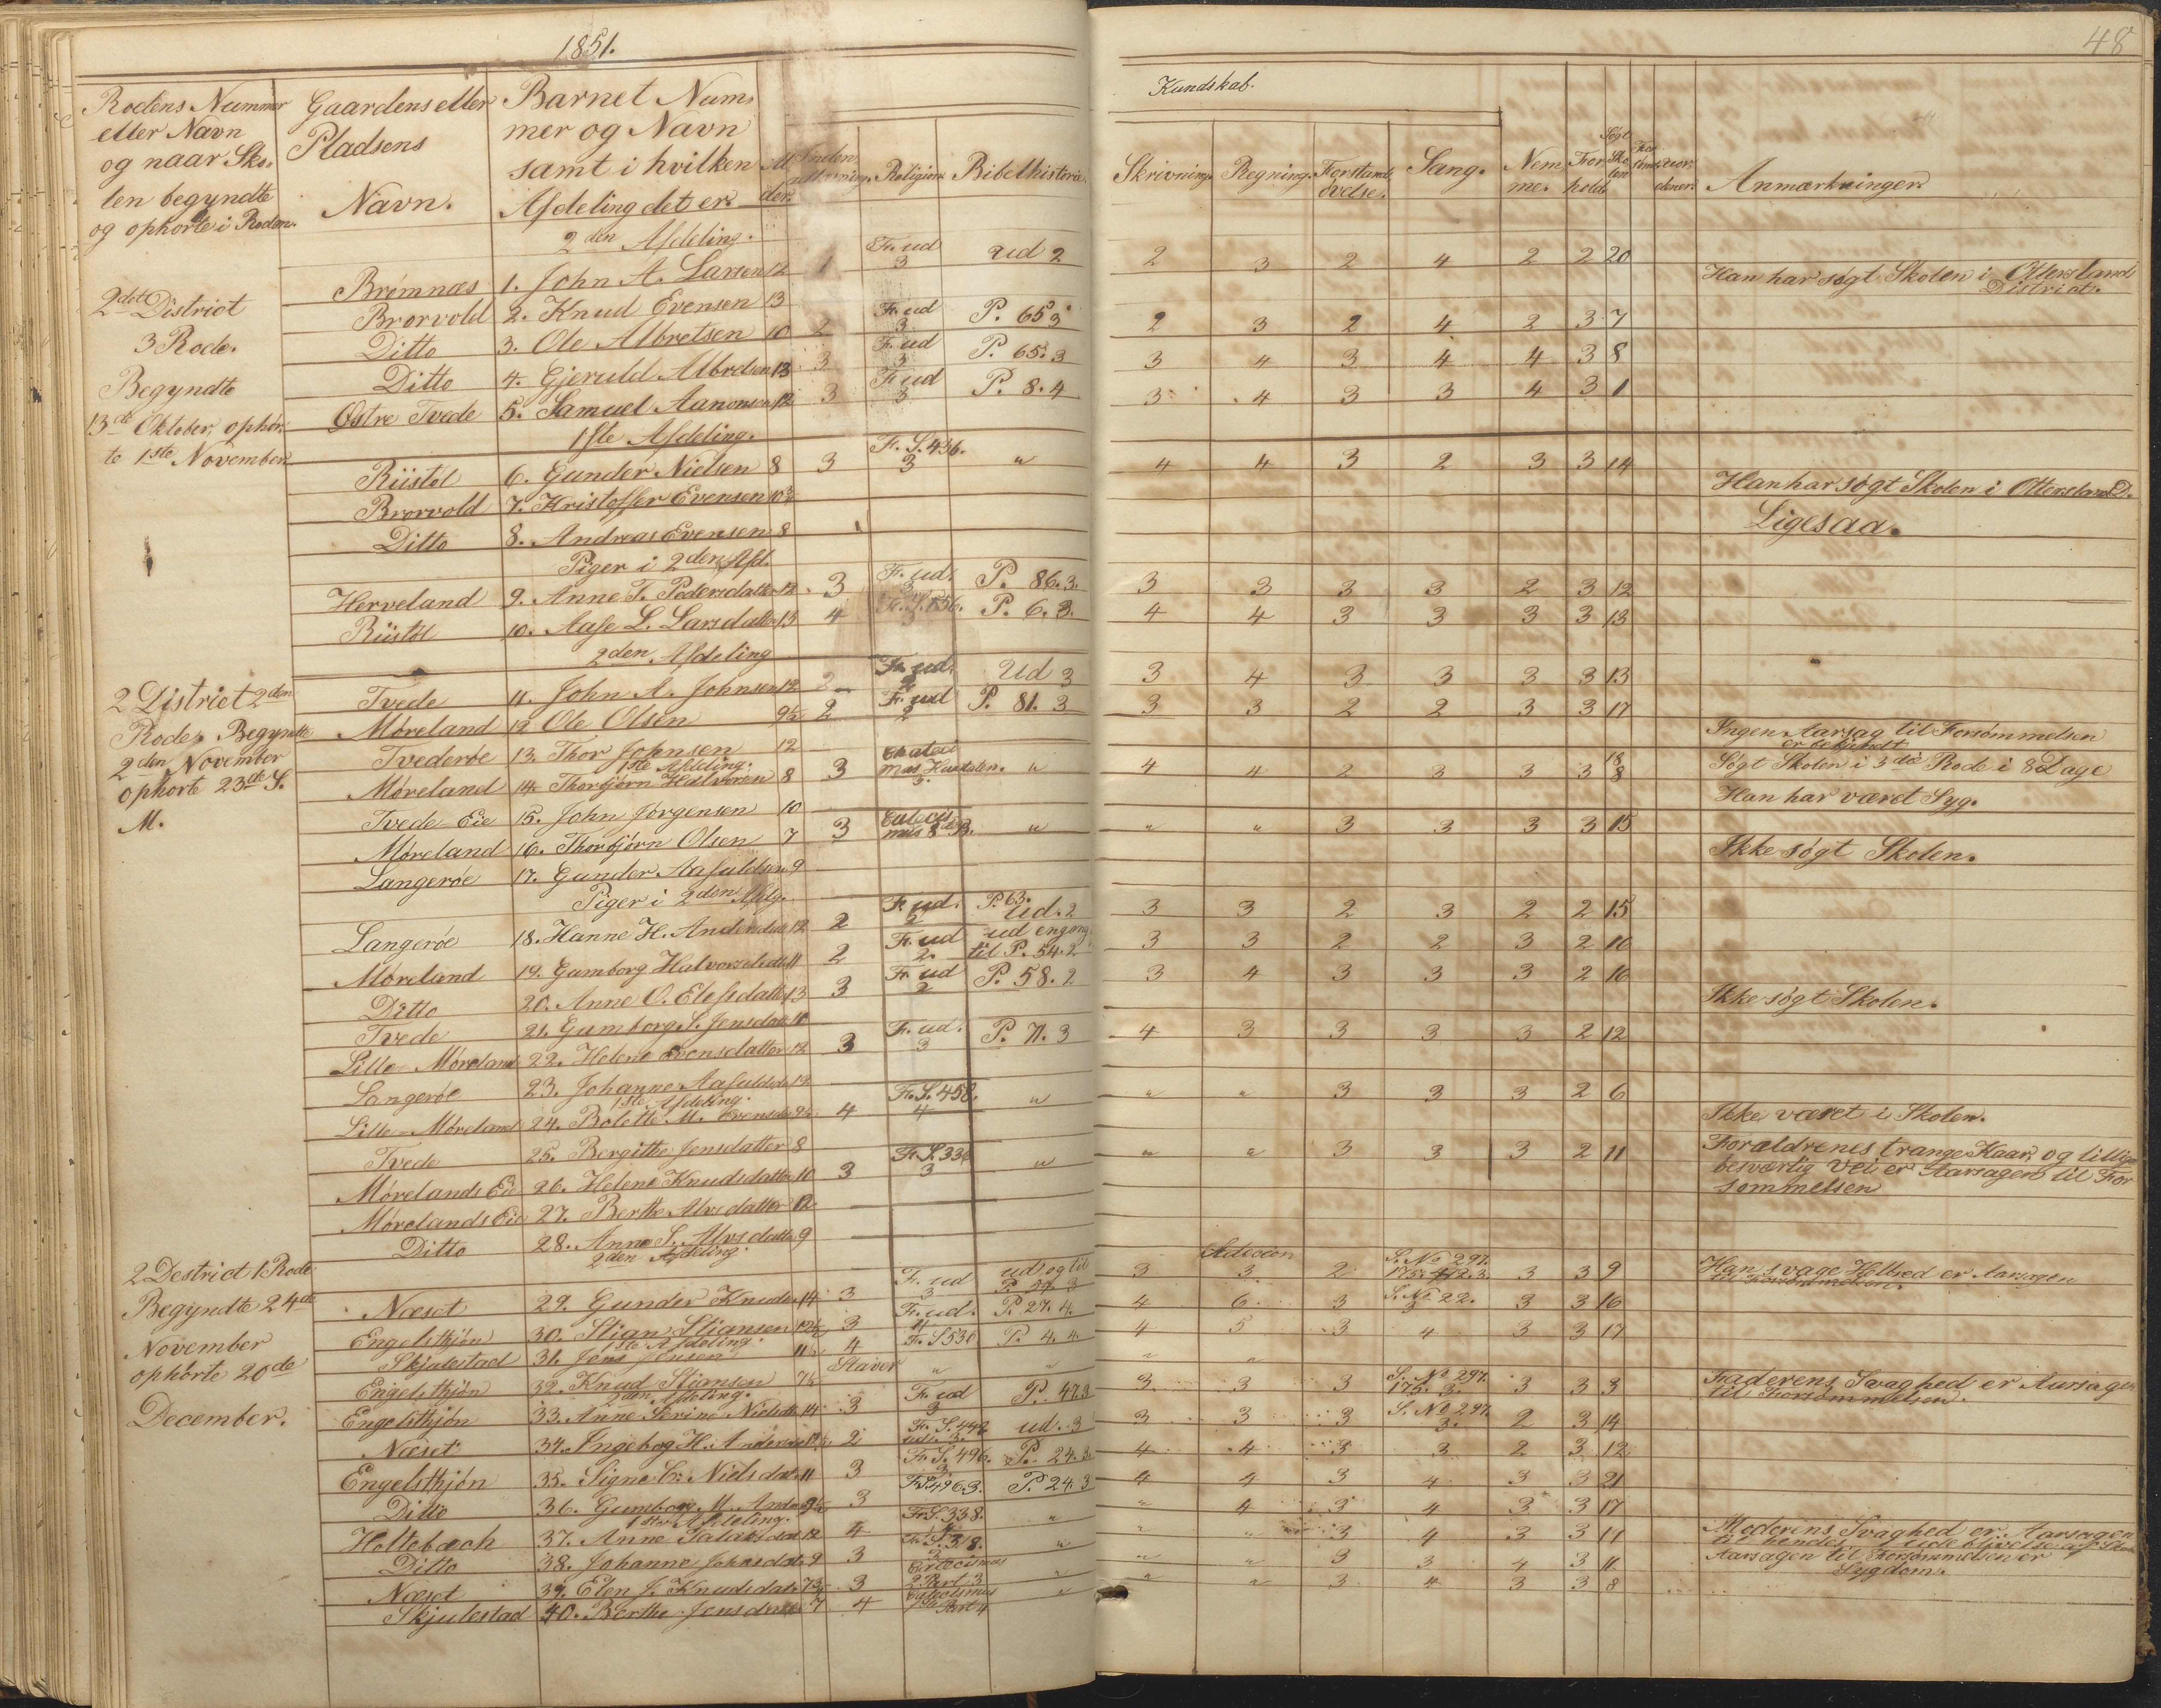 1851.
48
Rodens Nummer eller Navn og naar Skolen begyndte og ophørte i Roden.
Gaardens eller Pladsens Navn.
Barnet Nummer og Navn samt i hvilken Afdeling det er
Kundskab.
Religion. Bibelhistorie. Skrivning. Regning. Forstands øvelse. Sang. Nemme. Forhold. Søgt Skolen Anmærkninger.
2den Afdeling.
2det District
3 Rode.
Begyndte
13de Oktober, ophør-
te 1ste November
Brømnæs 1. John A. Larsen 12 1 Fr. ud 3 ud 2 2 3 2 4 2 2 20
Brørvold 2. Knud Evensen 13 Han har søgt Skolen i Ottersland District.
Ditto 3. Ole Albretsen 10 2 Fr. ud 3 P. 65 3 2 3 2 4 2 3 7
Ditto 4. Gjeruld Albretsen 13 3 Fr. ud 3 P. 65. 3 3 4 3 4 4 3 8
Østre Tvede 5. Samuel Aanonsen 12 3 Fr. ud 3 P. 8. 4 3 4 3 3 4 3 1
1ste Afdeling.
Riistøl 6. Gunder Nielsen 8 3 Fr. S. 436. 3 " 4 4 3 2 3 3 14
Brørvold 7. Kristoffer Evensen Han har søgt Skolen i Ottersland D.
Ditto 8. Andreas Evensen 8 Ligesaa.
Piger i 2den Afd.
Herveland 9. Anne T. Pedersdatter 12 3 Fr. ud. 3 P. 86. 3. 3 3 3 3 2 3 12
Riistøl 10. Aase L. Larsdatter 13 4 P. 6. 3. 4 4 3 3 3 3 13
2den Afdeling
2 District 2den
Rode. Begyndte
2den November
ophørte 23de S.
M.
Tvede 11. John A. Johnsen 12 2 Fr. ud. Ud 3 3 4 3 3 3 3 13
Møreland 12 Ole Olsen 9½ 2 Fr. ud 2 P. 81. 3 3 3 2 2 3 3 17
Tvederøe 13. Thor Johnsen 12 Ingen Aarsag til Forsømmelsen er bekjendt
1ste Afdeling.
Møreland 14. Thorbjørn Halvorsen 8 3 3. " 4 4 2 3 3 3 18 8 Søgt Skolen i 3die Rode i 8 Dage
Tvede Eie 15. John Jørgensen 10 Han har været Syg.
Møreland 16. Thorbjørn Olsen 7 3 " " " 3 3 3 3 15
Langerøe 17. Gunder Aasuldsen 9 Ikke søgt Skolen.
Piger i 2den Afdg.
Langerøe 18. Hanne H. Andersdat 12 2 Fr. ud. 2 P. 63. ud. 2 3 3 2 3 2 2 15
Møreland 19. Gumborg Halvorsdatt 11 2 Fr. ud 2. ud engang til P. 54. 2 3 3 2 2 3 2 10
Ditto 20. Anne O. Elefsdatter 13 3 Fr. ud 2 P. 58. 2 3 4 3 3 3 2 16
Tvede 21. Gumborg S. Jensdat 10 Ikke søgt Skolen.
Lille-Møreland 22. Helene Evensdatter 12 3 Fr. ud. 3 P. 71. 3 4 3 3 3 3 2 12
Langerøe 23. Johanne Aasuldsdt 12
1ste Afdeling.
Lille-Møreland 24. Bolette M. Evensdt 9½ 4 Fr. S. 458. 4 " " " 3 3 3 2 6
Tvede 25. Bergitte Jensdatter 8 Ikke været i Skolen.
Mørelands Eie 26. Helene Knudsdatter 10 3 Fr. S. 336 3 " " " 3 3 3 2 11 Forældrenes trange Kaar og tillige besværlig Vei er Aarsagen til Forsømmelsen
Mørelands Eie 27. Berthe Alvsdatter 12
Ditto 28. Anne S. Alvsdatter 9
2den Afdeling.
2 Destrict 1 Rode
Begyndte 24de
November
ophørte 20de
December.
Næset 29. Gunder Knudsen 14 3 Fr. ud 3 ud og til 3 3 Adicion 3 2 S. No 297. 3 3 9 Hans svage Helbred er Aarsagen til Forsømmelsen.
Engelsthjøn 30. Stian Stiansen 12½ 3 Fr. ud. 4 P. 27. 4. 4 6 3 S. No 22. 3 3 3 16
1ste Afdeling.
Skjulestad 31. Jens Jensen 11½ 4 Fr. S 530 P. 4. 4. 4 5 3 4 3 3 17
Engelsthjøn 32. Knud Stiansen 7½ Staver " " " "
2den Afdeling.
Engelsthjøn 33. Anne Serine Nielsdt 14 3 Fr. ud 3 P. 47. 3 3 3 3 S. No 297. 175. 3. 3 3 3 Faderens Svaghed er Aarsagen til Forsømmelsen.
Næset 34. Ingeborg H. Andersdt 2 Fr. S. 442 ud. 3 3 3 3 S. No 297. 3. 2 3 14
Engelsthjøn 35. Signe C. Nielsdat. 11 3 Fr. S. 496. 3 P. 24. 3. 4 4 3 3 2 3 12
Ditto 36. Gumborg M. Andersdt 3 Fr. S. 496. 3. P. 24. 3 4 4 3 4 3 3 21
1ste Afdeling.
Holtebæch 37. Anne Salvesdat 12 4 Fr. S. 338. 4 " " 4 3 4 3 3 17
Ditto 38. Johanne Johnsdat. 9 3 Fr. S. 318. " " " 3 4 3 3 11 Moderens Svaghed er Aarsagen til hendes Udeblivelse af Skolen
Næset 39. Elen J. Knudsdat. 7¾ 3 Catecismus 2. Part. 3 " " " 3 3 4 3 11. Aarsagen til Forsømmelsen er Sygdom.
Skjulestad 40. Berthe Jensdatter 7 4 Catecismus 1ste Part 4 " " " 3 4 3 3 8